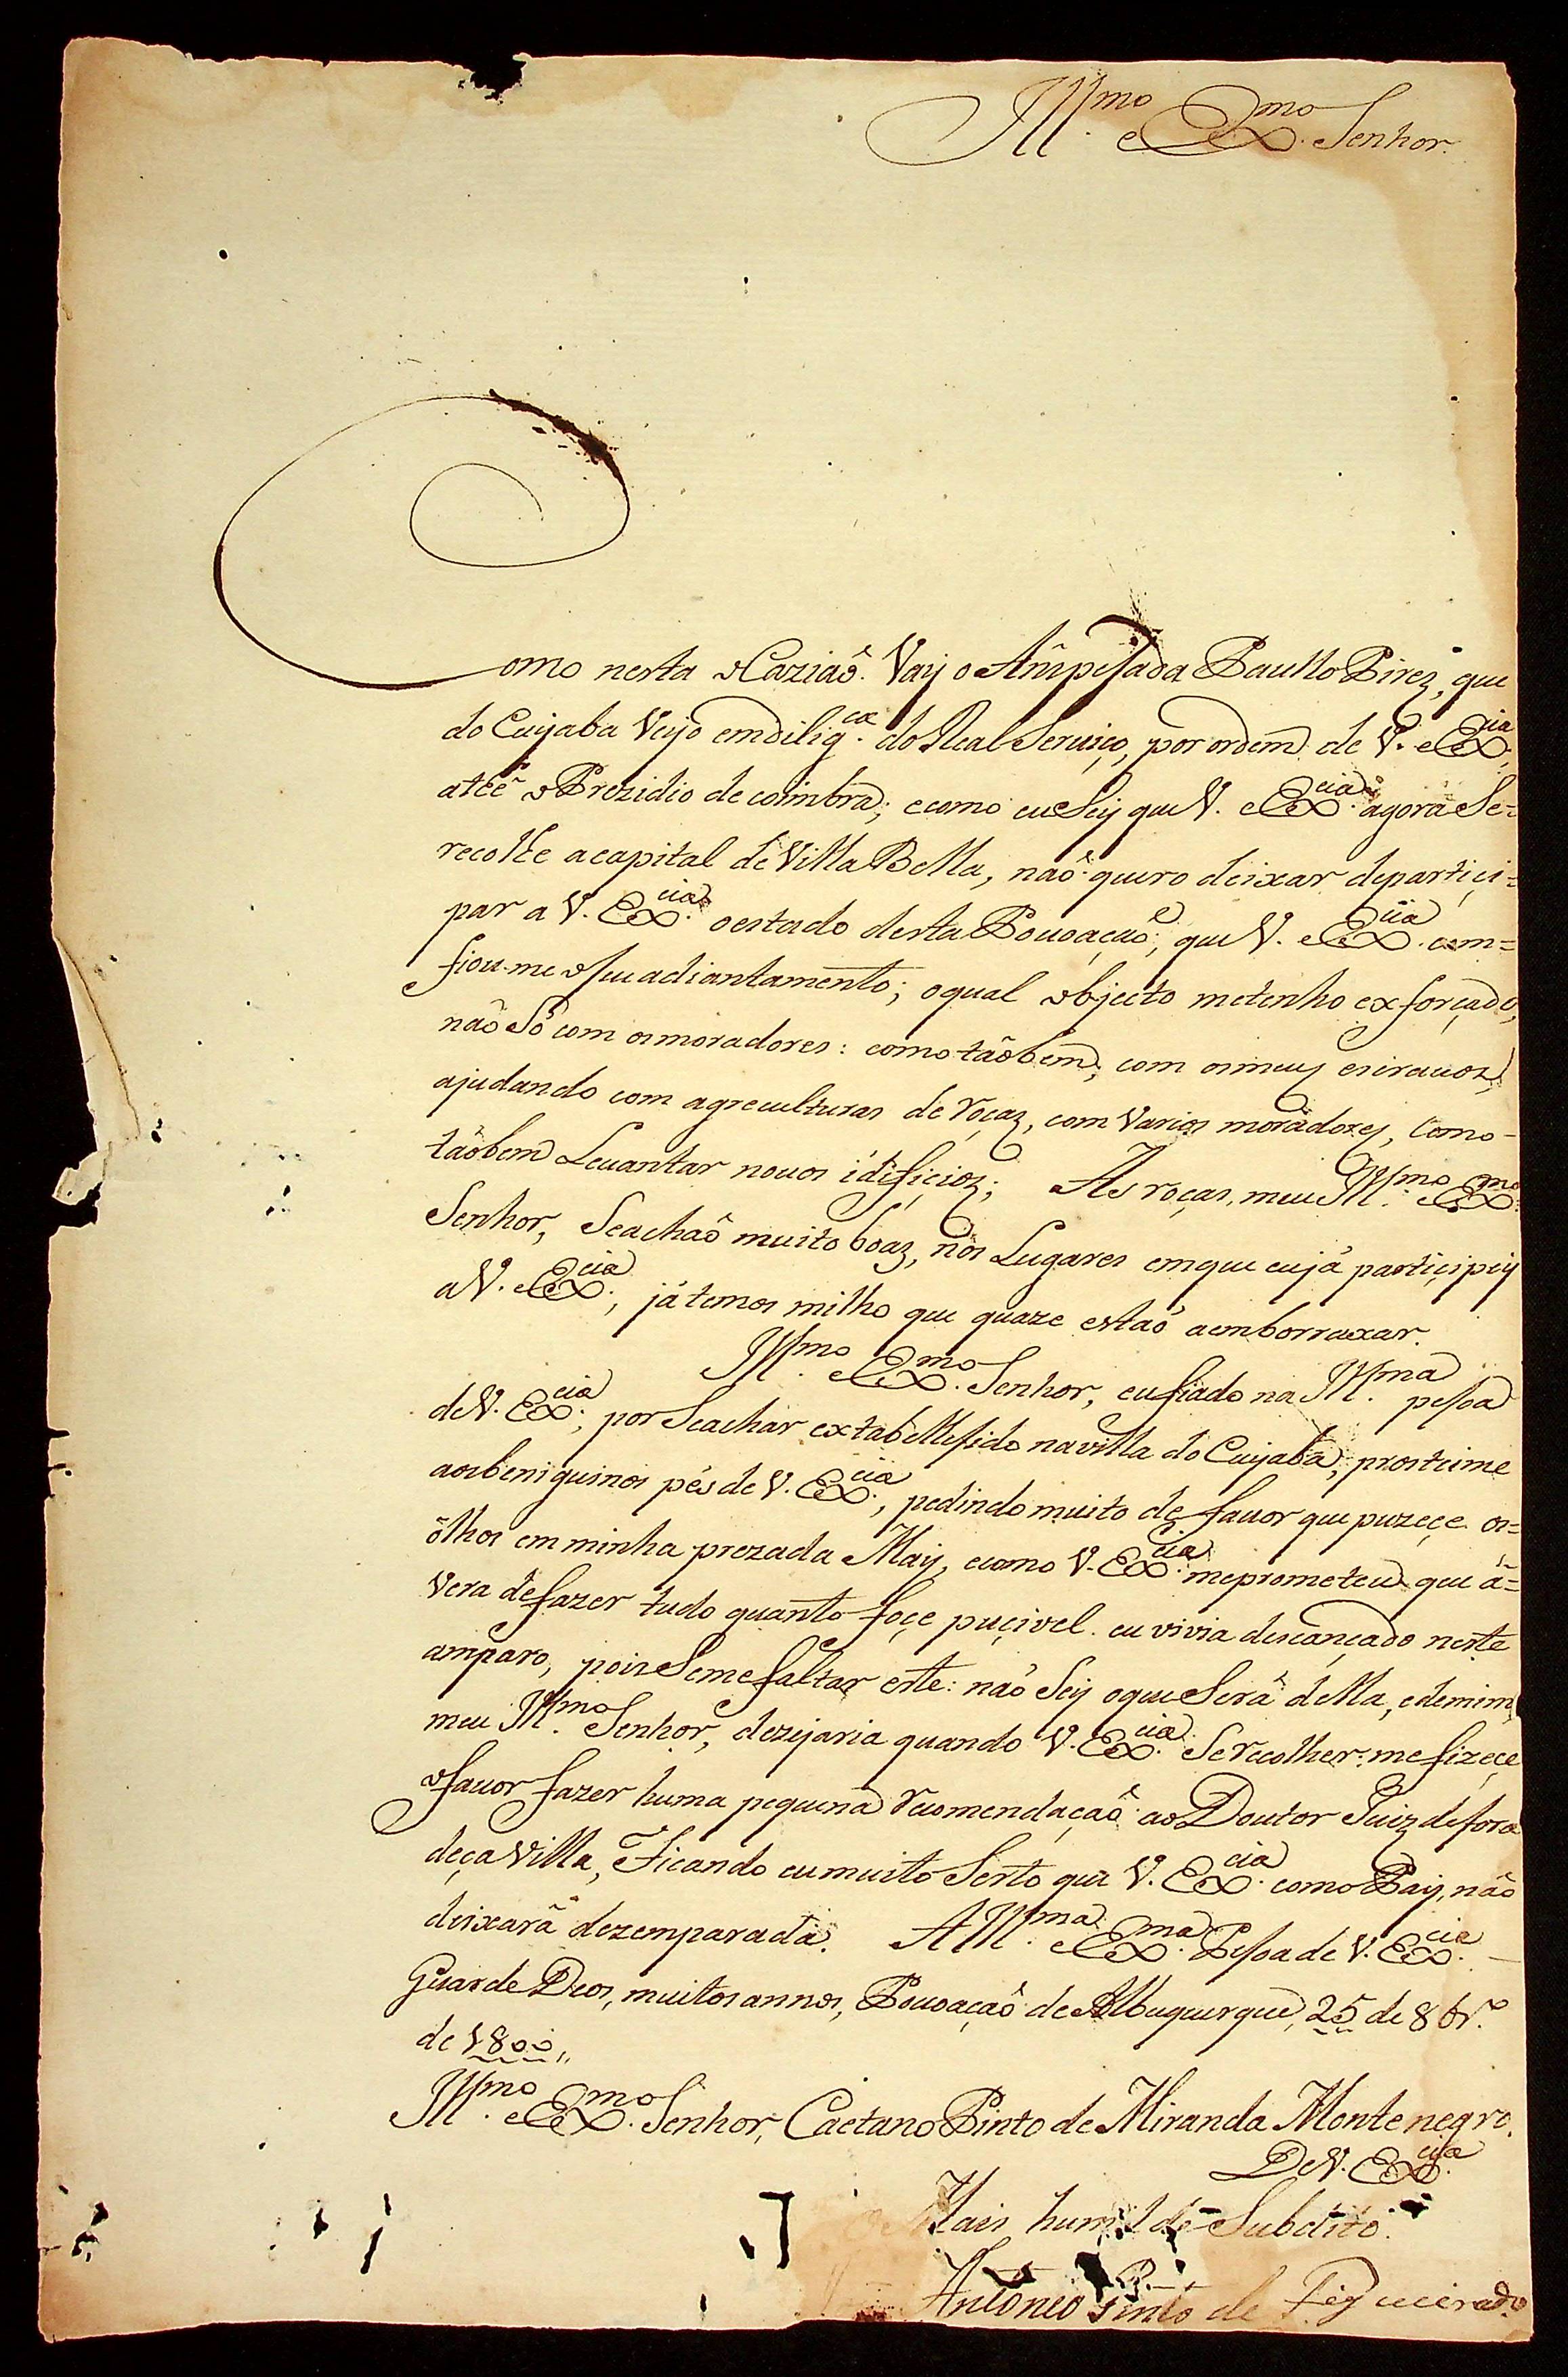 Ill.mo e Ex.mo Senhor.
Como nesta oCaziaõ. Vay o Anspesada Paullo Pirez, que
do Cuyaba Veyo em dilig.ca do Real Serviço, por ordem de V. Ex.cia,
atêê o Prezidio de coimbra; e como eu Sey que V. Ex.cia agora Se=
recolhe a capital de Villa Bella, naõ quero deixar departiçi=
par a V. Ex.cia o estado desta Povoaçaõ; que V. Ex.cia com=
fiou-me o seu adiantamento; o qual objecto metenho exforçado,
naõ Só com os moradores: como taõbem, com os meus escravoz,
ajudando com agreculturas de roçaz, com Varios moradores, Como-
taõbem Levantar novos idifiçioz; As roças, meu Ill.mo Ex.mo
Senhor, Seachaõ muito boaz, nos Lugares emque eujá partiçipey
aV. Ex.cia, játemos milho que quaze estaõ aemborraxar.
Ill.mo Ex.mo Senhor, eu fiado na Ill.ma pessoa
deV. Ex.cia, por Seachar extabellesido navilla do Cuyabá, prosteime
aosbeniguinos pés de V. Ex.cia, pedindo muito de favor que puzeçe os=
ôlhos em minha prezada May, ecomo V. Ex.cia meprometeu que á=
vera defazer tudo quanto foçe puçivel. eu vivia descançado neste
amparo, pois Seme faltar este: naõ Sey oque Será della, edemim,
meu Ill.mo Senhor, dezejaria quando V. Ex.cia Serecolher: me fizeçe
o favor fazer huma pequena recomendaçaõ ao Doutor Juiz de fora
deça Villa, Ficando eu muito Serto que V. Ex.cia como Pay, naõ
deixarâ dezemparada. A Ill.ma Ex.ma Pessoa de V. Ex.cia -
Guarde Deos, muitos annos, Povoaçaõ de Albuquerque, 25 de 8br.º
de 1800,,
Ill.mo Ex.mo Senhor, Caetano Pinto de Miranda Montenegro.
DeV. Ex.cia
o Mais humilde Subdito.
Antoneo Pinto de Figueiredo